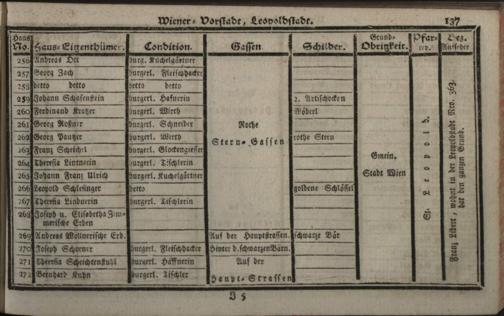 Wiener-Vorstadt, Leopoldstadt. 137
Haus No. Haus-Eigenthümer. Condition. Gassen Schilder. Grund-Obrigkeit. Pfarrer. Bez. Aufseher
256 Andreas Ott burg. Kuchelgärtner
257 Georg Zach burgerl. Fleischhacker
258 detto detto detto detto
259 Johann Schafenstein burgerl. Hafnerin 2. Artischocken
260 Ferdinand Kratzer burgerl. Wirth
261 Georg burgerl. Schneider Rothe
262 Georg Panzer burgerl. Wirth Stern-Gassen rothe Stern
263 Franz Scheichl burgerl. Glockengiesser Gmein.
264 Theresia Lintnerin burgerl. Tischlerin Stadt Wien
265 Johann Franz Ulrich burgerl. Kuchelgärtner
266 Leopold Schlesinger detto goldene Schlössel
267 Theresia Lindnerin burgerl. Tischlerin
268 Joseph u. Elisabetha Zimmerische Erben
269 Andreas Wollnerische Erb. Auf der Hauptstrassen. schwarze Bär
270 Joseph Schoener burgerl. Fleischhacker Hinter d. schwarzen Bärn.
271 Theresia Scheichenstuhl burgerl. Häffnerin Auf der
272 Bernhard Kuhn burgerl. Tischler Haupt-Strassen
St. Leopold.
Franz Libert, wohnt in der Leopoldstadt Nro. 363. hat den ganzen Grund.
J 5